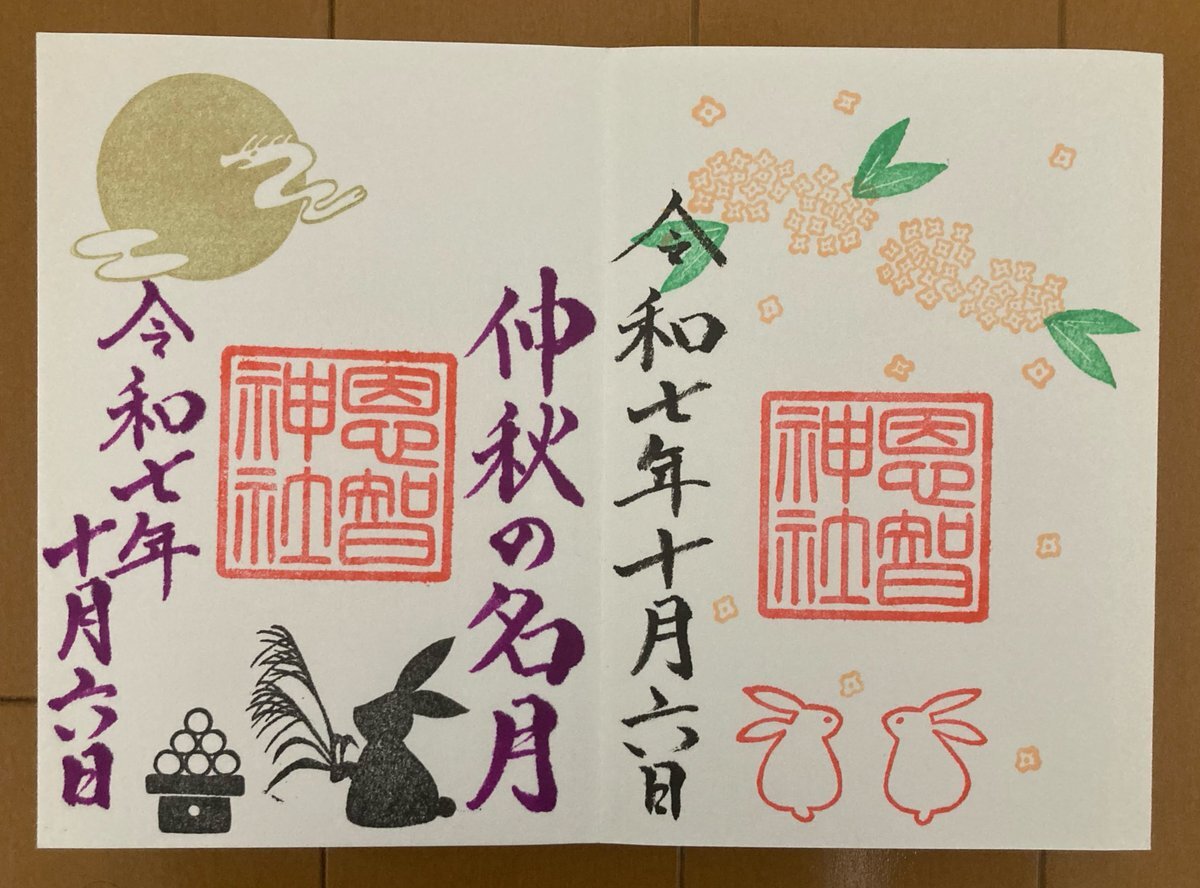 令和七年十月六日
恩智
神社
仲秋の名月
恩智
神社
令和七年
十月六日